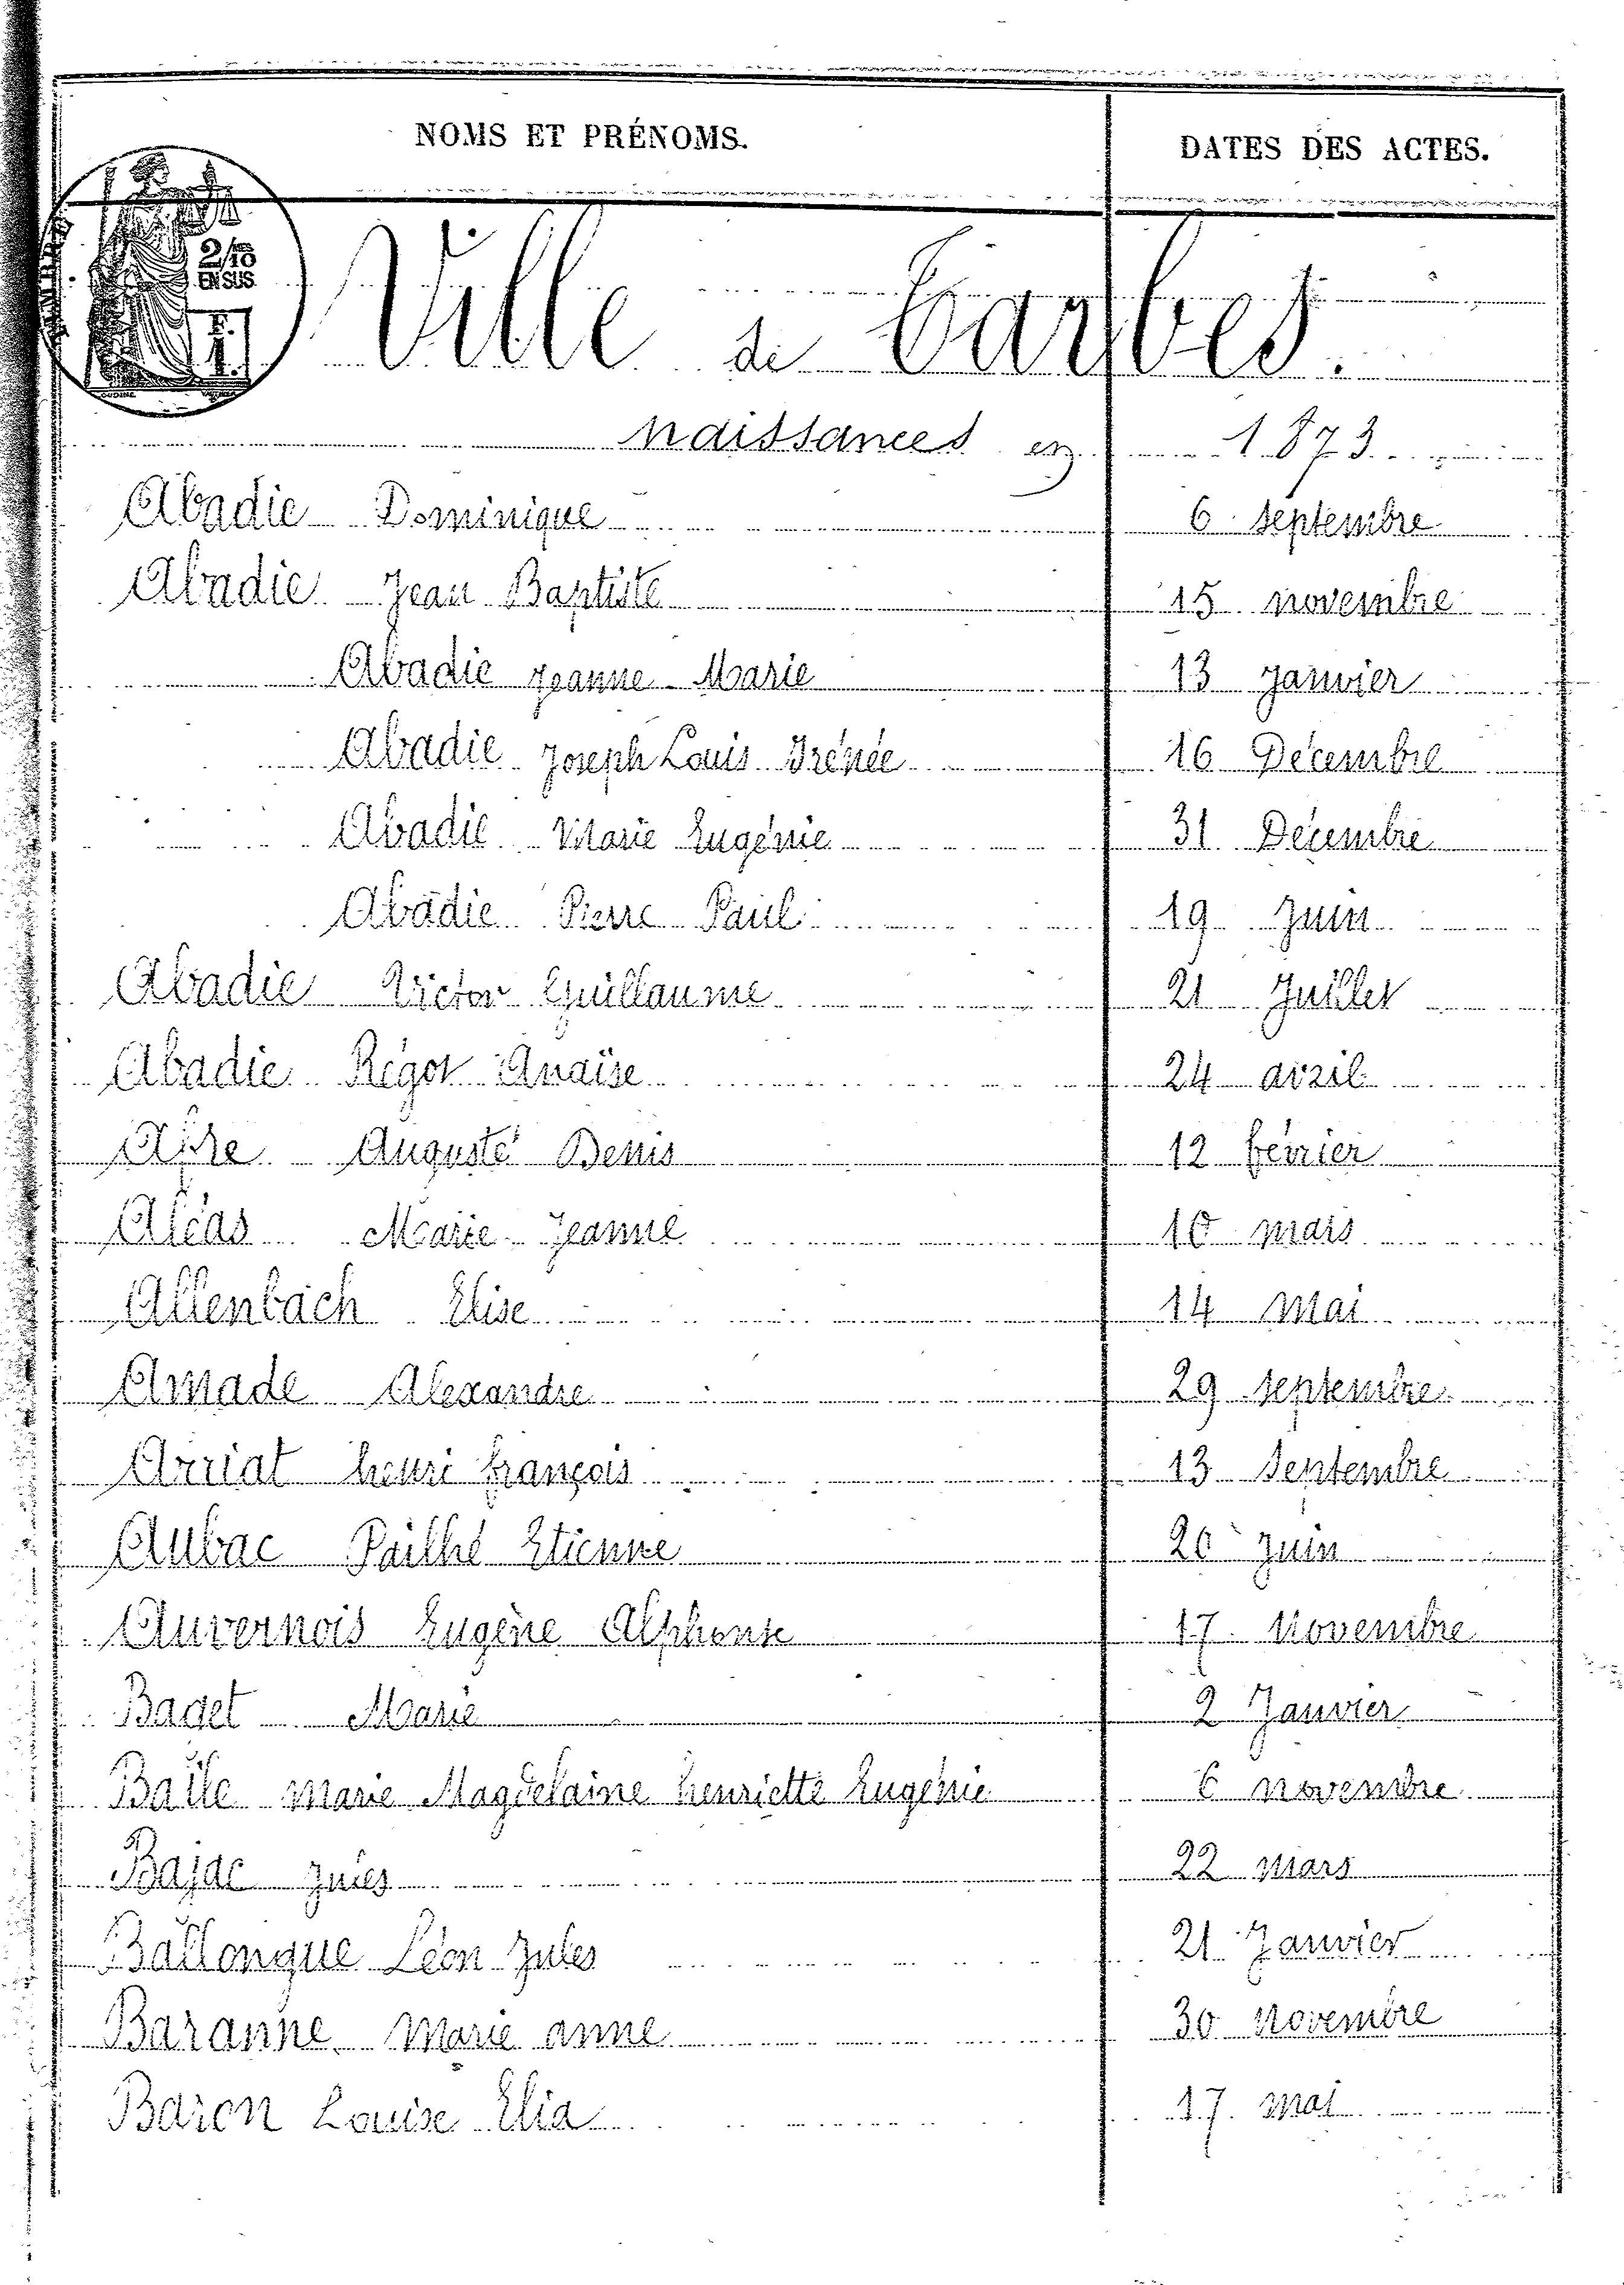 NOMS ET PRÉNOMS. DATES DES ACTES.
2/10
EN SUS
Ville de Tarbes.
Naissances en 1873.
Abadie Dominique 6 septembre
Abadie Jean Baptiste 15 novembre
Abadie Jeanne Marie 13 Janvier
Abadie Joseph Louis Irénée 16 Décembre
Abadie Marie Eugénie 31 Décembre
Abadie Pierre Paul 19 Juin
Abadie Victor Guillaume 21 Juillet
Abadie Régot Anaïse 24 avril
Auguste Denis 12 février
Marie Jeanne 10 mars
Allenbach Elise 14 Mai
Amade Alexandre 29 septembre
Arriat henri françois 13 Septembre
Aubac Pailhé Etienne 20 Juin
Auvernois Eugène Alphonse 17 Novembre
Baget Marie 2 Janvier
Baile Marie Magdelaine henriette Eugénie 6 novembre
Bajac Jules 22 Mars
Ballongue Léon Jules 21 Janvier
Baranne Marie anne 30 Novembre
Baron Louise Elia 17 Mai